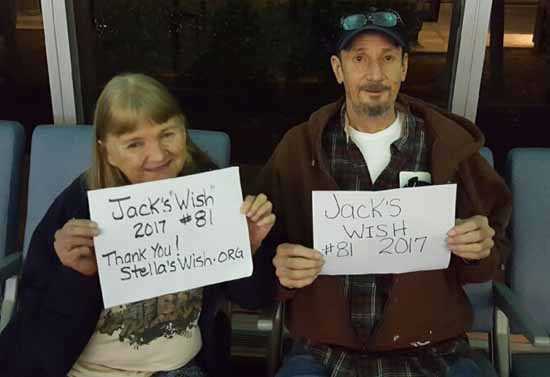 Jack's "Wish"
2017 #81
Thank You!
Stella's Wish.ORG
Jack's
WISH
#81 2017